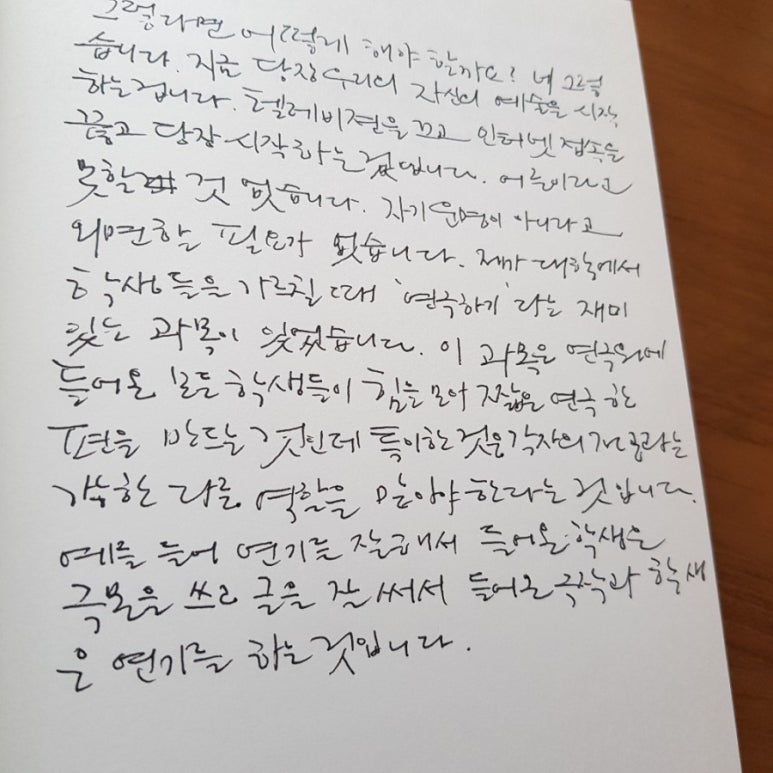 그렇다면 어떻게 해야 할까요? 네 그렇
습니다. 지금 당장 우리의 자신의 예술을 시작
하는 겁니다. 텔레비젼을 끄고 인터넷 접속을
끊고 당장 시작하는 것입니다. 어른이라고
못할 것 없습니다. 자기 운명이 아니라고
외면할 필요가 없습니다. 제가 대학에서
학생들을 가르칠 때 '연극하기'라는 재미
있는 과목이 있었습니다. 이 과목은 연극원에
들어온 모든 학생들이 힘을 모아 짧은 연극 한
편을 만드는 것인데 특이한 것은 각자의 전공과는
가능한 다른 역할을 맡아야 한다는 것입니다.
예를 들어 연기를 잘해서 들어온 학생은
극본을 쓰고 글을 잘 써서 들어온 극작과 학생
은 연기를 하는 것입니다.